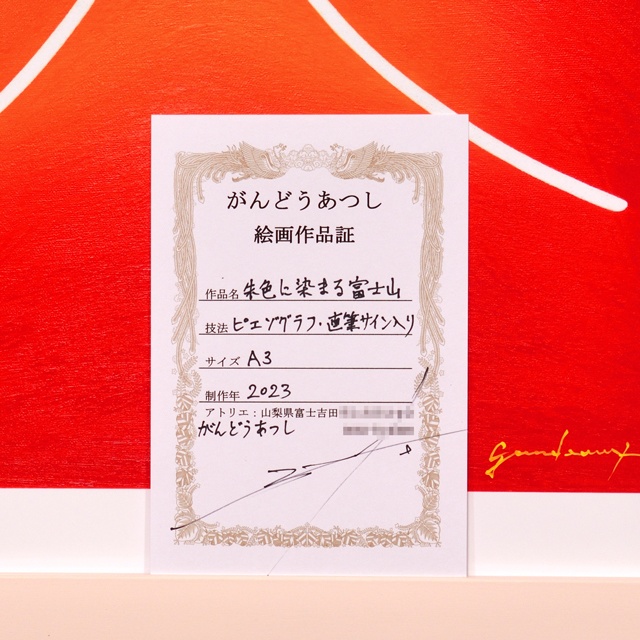 がんどうあつし
絵画作品証
作品名 朱色に染まる富士山
技法 ピエゾグラフ・直筆サイン入り
サイズ A3
制作年 2023
アトリエ：山梨県富士吉田
がんどうあつし
Gandeaux